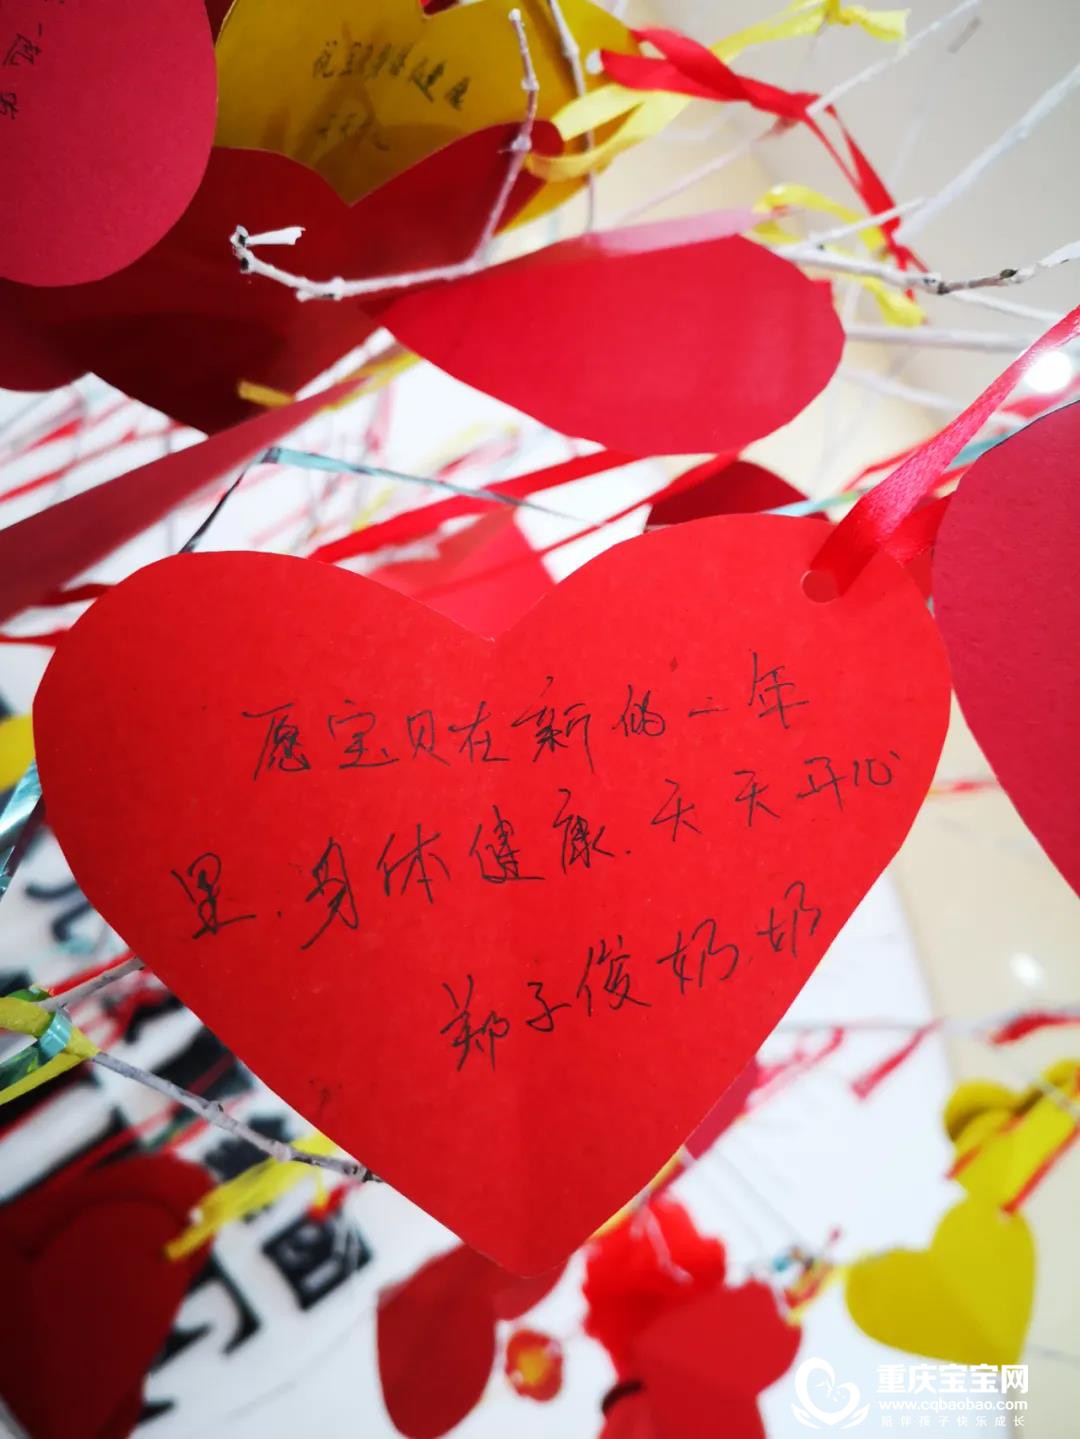 祝宝贝身体健康
天天开心
愿宝贝在新的一年
里.身体健康.天天开心
郑子俊奶奶
重庆宝宝网
www.cqbaobao.com
陪伴孩子快乐成长